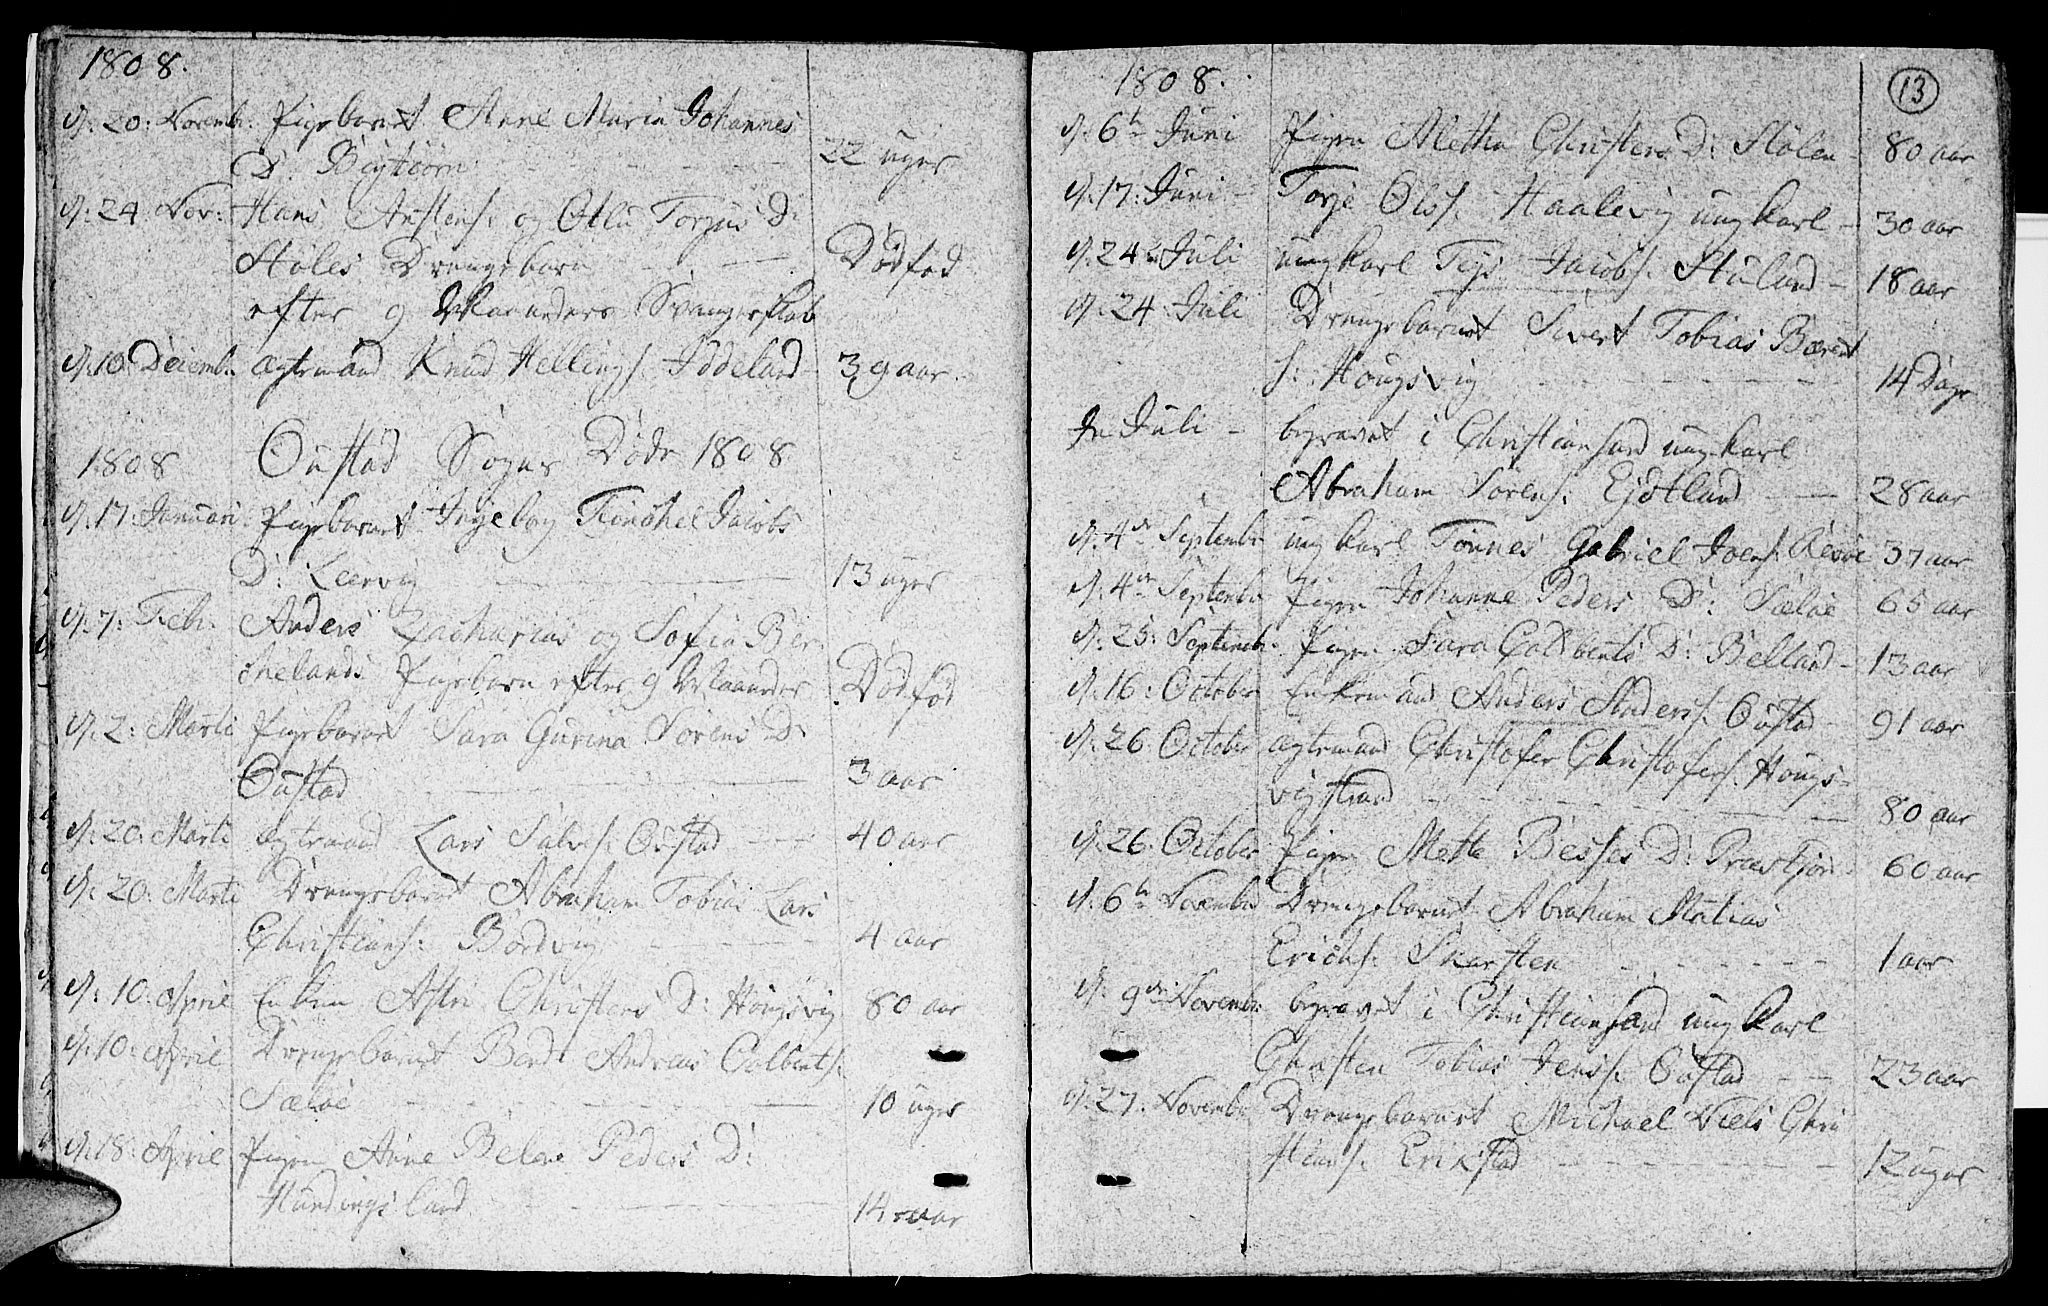 1808.
d: 20: Novemb: Pigebarnet Anne Maria Johannes
D: 22 uger
d: 24: Nov: Hans Austens: og Torjus D:
Støles Drengebarn - - - Dødfød
efter 9 Maaneders Svangerskab
d: 10 Decemb: ægtemand Knud Hellings: Iddeland - 39 aar.
1808 Oustad Sogns Døde 1808
d: 17: Januari Pigebarnet Ingeborg Jacobs
D: Leervig - - - 13 uger
d: 7: Feb: Anders Zacharias og Sofia Ber
chelands Pigebarn efter 9 Maaneder Dødfød
d: 2: Marti Pigebarnet Sara Gurina Sørens D:
Oustad - - - 3 aar
d: 20: Marti ægtemand Lars Salves: Oustad - - 40 aar
d: 20: Marti Drengebarnet Abraham Tobias Lars
Christians: Bordvig - - - 4 aar
d: 10: April Enken Astri Christens D: Høugsvig 80 aar
d: 10: April Drengebarnet Berdt Andreas Colbents:
Sæløe - - - 10 uger
d: 18: April Pigen Anne Belene Peders D:
Hundingsland - - - 14 aar
1808. 13
d: 6te Juni Pigen Aletha Christens D: Stølen - 80 aar
d: 17: Juni - Torje Ols: Haalevig ungkarl - 30 aar
d: 24de Juli ungkarl Jacobs: Stuland - 18 aar
d: 24 Juli Drengebarnet Sivert Tobias Bærent
s: Høugsvig - - - 14 Dage
In Juli - begravet i Christiansand ungkarl
Abraham Sørens: Ejdtland - - 28 aar
d: 4de Septemb: ungkarl Tønnes Gabriel Joens: 37 aar
d: 4de Septemb: Pigen Johanne Peders D: Sæløe 65 aar
d: 25: Septemb: Pigen Sara D: Belland - 13 aar
d: 16: October Enkemand Anders Anders: Oustad - 91 aar
d: 26: October ægtemand Christofer Christofers: Høugs-
vigstrand - - - 80 aar
d: 26: October Pigen Mette D: 60 aar
d: 6te Novemb: Drengebarnet Abraham Matias
Erichs: Skarsten - - - 1 aar
d: 9de Novemb: begravet i Christiansand ungkarl
Christen Tobias Jens: Oustad - - 23 aar
d: 27: Novemb: Drengebarnet Michael Niels Chri
stians: Erikstad - - - 12 uger